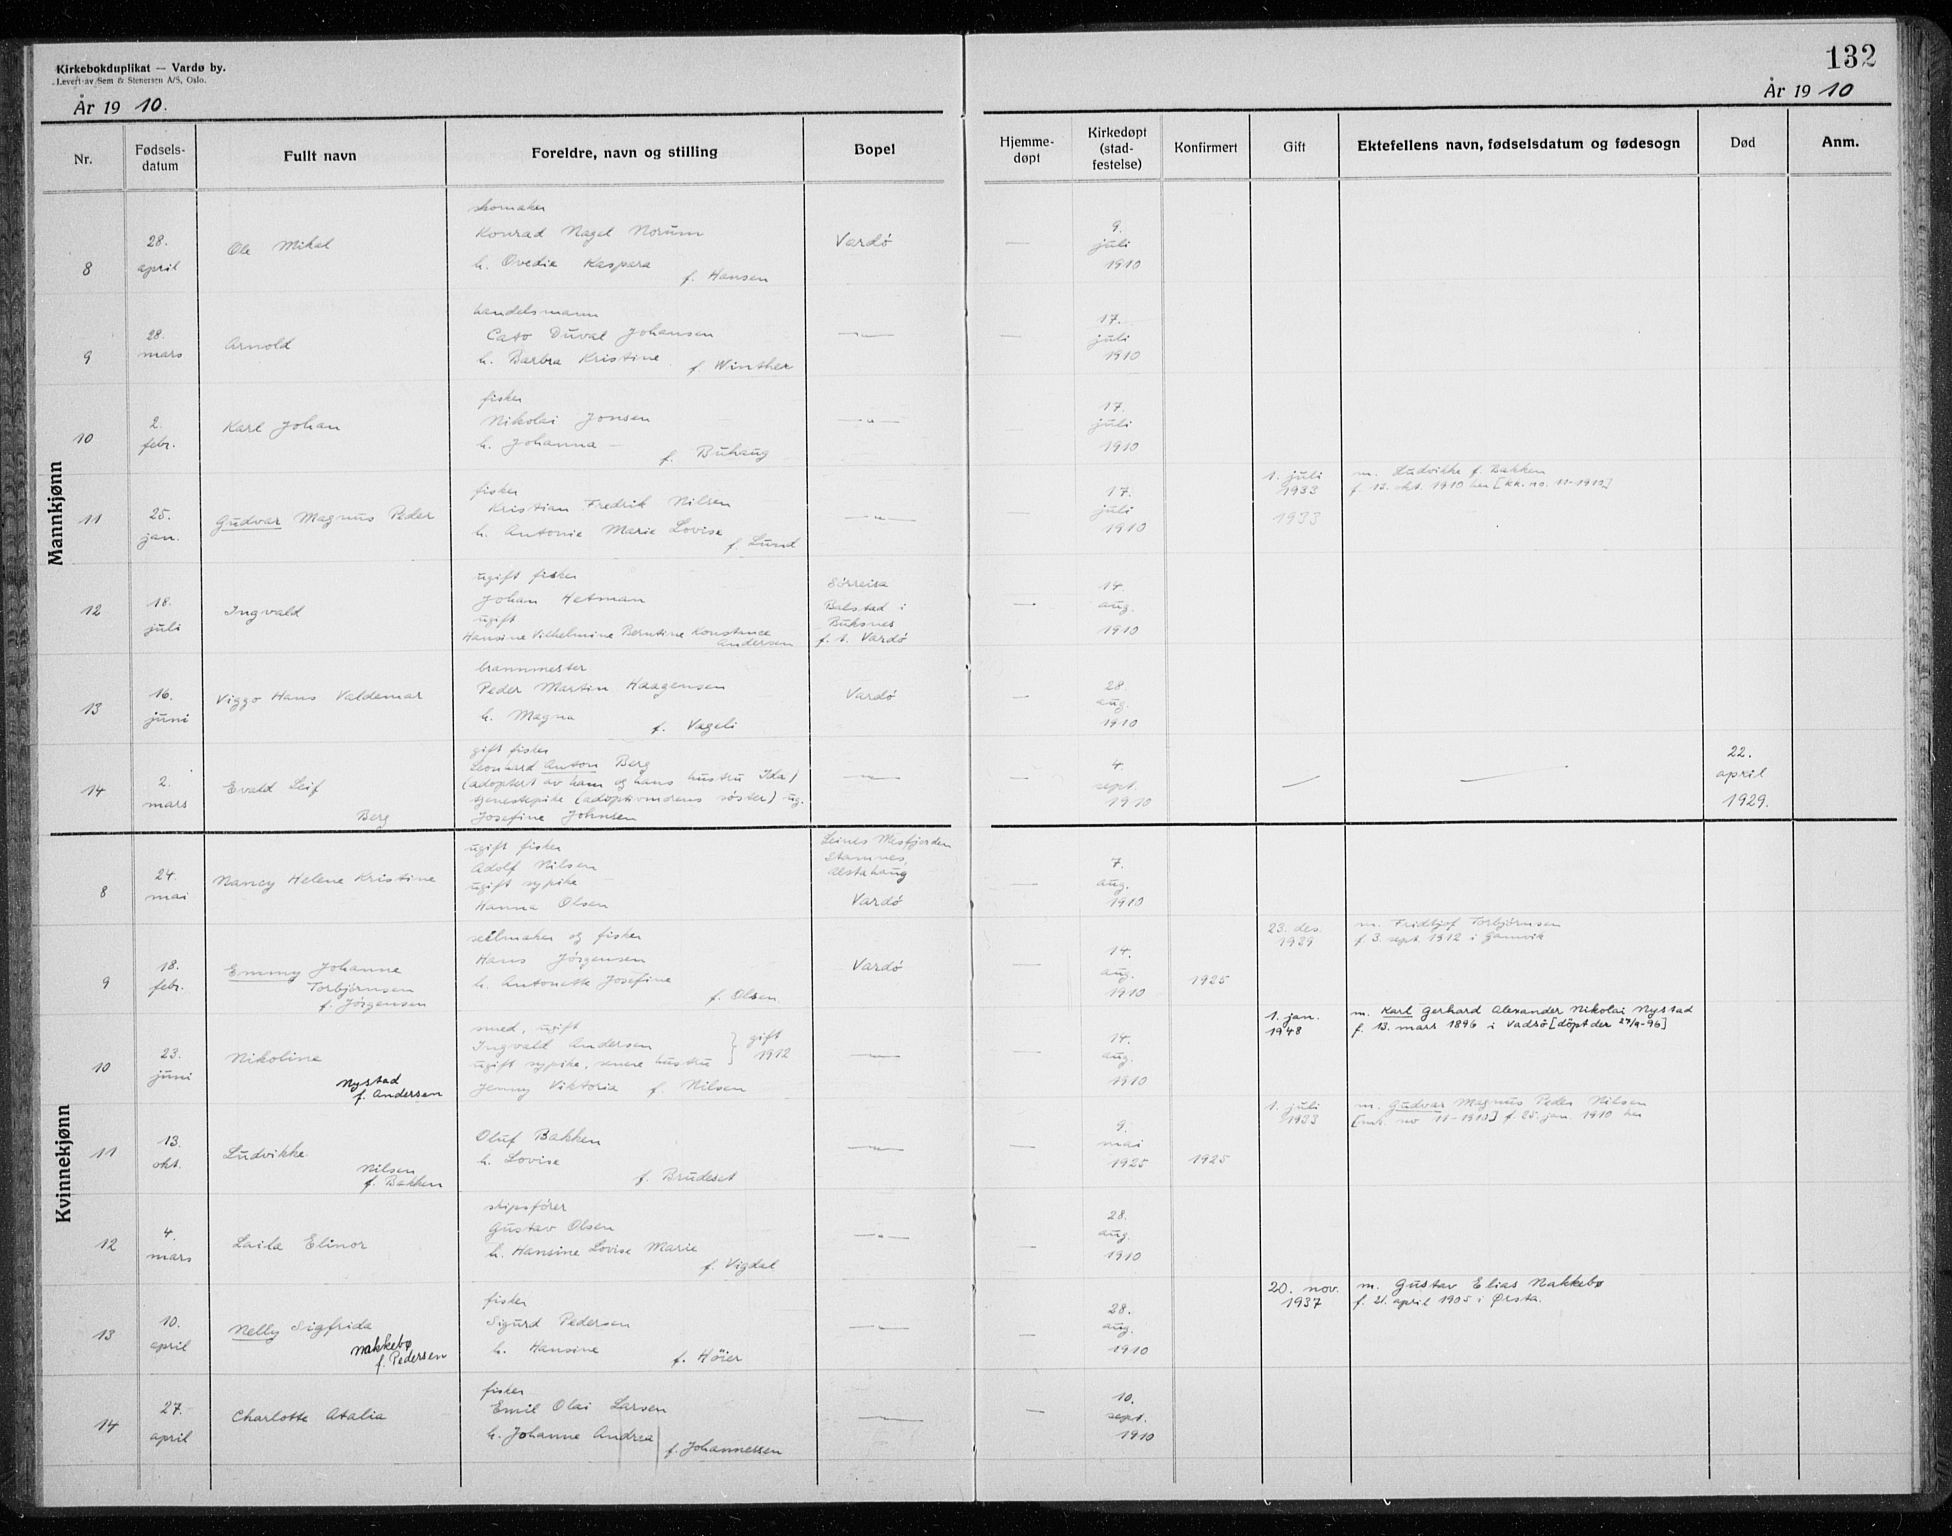 Kirkebokduplikat — Vardø by.
Levert av Sem & Stenersen A/S, Oslo.
132
År 19 10.
År 19 10
Nr.
Fødsels-
datum
Fullt navn
Foreldre, navn og stilling
Bopel
Hjemme-
døpt
Kirkedøpt
(stad-
festelse)
Konfirmert
Gift
Ektefellens navn, fødselsdatum og fødesogn
Død
Anm.
Mannkjønn
8
28.
april
Ole Mikal
skomaker
Konrad Nagel Norum
h. Ovedia Kaspara
f. Hansen
Vardö
—
9.
juli
1910
9
28.
mars
Arnold
handelsmann
Cato Duval Johansen
h. Barbra Kristine
f. Winther
—"—
—
17.
juli
1910
10
2.
febr.
Karl Johan
fisker
Nikolai Jonsen
h. Johanna —
f. Buhaug
—"—
—
17.
juli
1910
11
25.
jan.
Gudvar Magnus Peder
fisker
Kristian Fredrik Nilsen
h. Antonie Marie Lovise
f. Lund
—"—
—
17.
juli
1910
1. juli
1933
1933
m. Ludvikke f. Bakken
f. 13. okt. 1910 her [kk. no. 11-1910]
12
18.
juli
Ingvald
ugift fisker
Johan Hetman
ugift
Hansine Vilhelmine Berntine Konstance
Andersen
Sörreisa
Balstad i
Buksnes
f. t. Vardö
—
14.
aug.
1910
13
16.
juni
Viggo Hans Valdemar
brannmester
Peder Martin Haagensen
h. Magna
f. Vageli
Vardö
—
28.
aug.
1910
14
2.
mars
Evald Leif
Berg
gift fisker
Leonhard Anton Berg
(adoptert av ham og hans hustru Ida)
tjenestepike (adoptivmdrens søster) ug.
Josefine Johnsen
—"—
—
4.
sept.
1910
—
—
22.
april
1929.
Kvinnekjønn
8
24.
mai
Nancy Helene Kristine
ugift fisker
Adolf Nilsen
ugift sypike
Hanna Olsen
Leines Mesfjorden
Stamnes,
Alstahaug
Vardö
—
7.
aug.
1910
9
18.
febr.
Emmy Johanne
Torbjörnsen
f. Jörgensen
seilmaker og fisker
Hans Jörgensen
h. Antonette Josefine
f. Olsen
Vardö
—
14.
aug.
1910
1925
23. des.
1929
m. Fridtjof Torbjörnsen
f. 3. sept. 1912 i Gamvik
10
23.
juni
Nikoline
Nystad
f. Andersen
smed, ugift
Ingvald Andersen
ugift sypike, senere hustru
Jenny Viktoria f. Nilsen
} gift
1912
—"—
—
14.
aug.
1910
1. jan.
1948
m. Karl Gerhard Alexander Nikolai Nystad
f. 13. mars 1896 i Vadsö [döpt der 27/9-96]
11
13.
okt.
Ludvikke
Nilsen
f. Bakken
Oluf Bakken
h. Lovise
f. Brudeset
—"—
—
9.
mai
1925
1925
1. juli
1933
m. Gudvar Magnus Peder Nilsen
[mk. no 11-1910] f. 25. jan. 1910 her
12
4.
mars
Laila Elinor
skipsförer
Gustav Olsen
h. Hansine Lovise Marie
f. Vigdal
—"—
—
28.
aug.
1910
13
10.
april
Nelly Sigfrida
Nakkebø
f. Pedersen
fisker
Sigurd Pedersen
h. Hansine
f. Höier
—"—
—
28.
aug.
1910
20. nov.
1937
m. Gustav Elias Nakkebø
f. 21. april 1905 i Ørsta.
14
27.
april
Charlotte Atalia
fisker
Emil Olai Larsen
h. Johanne Andrea
f. Johannessen
—"—
—
10.
sept.
1910